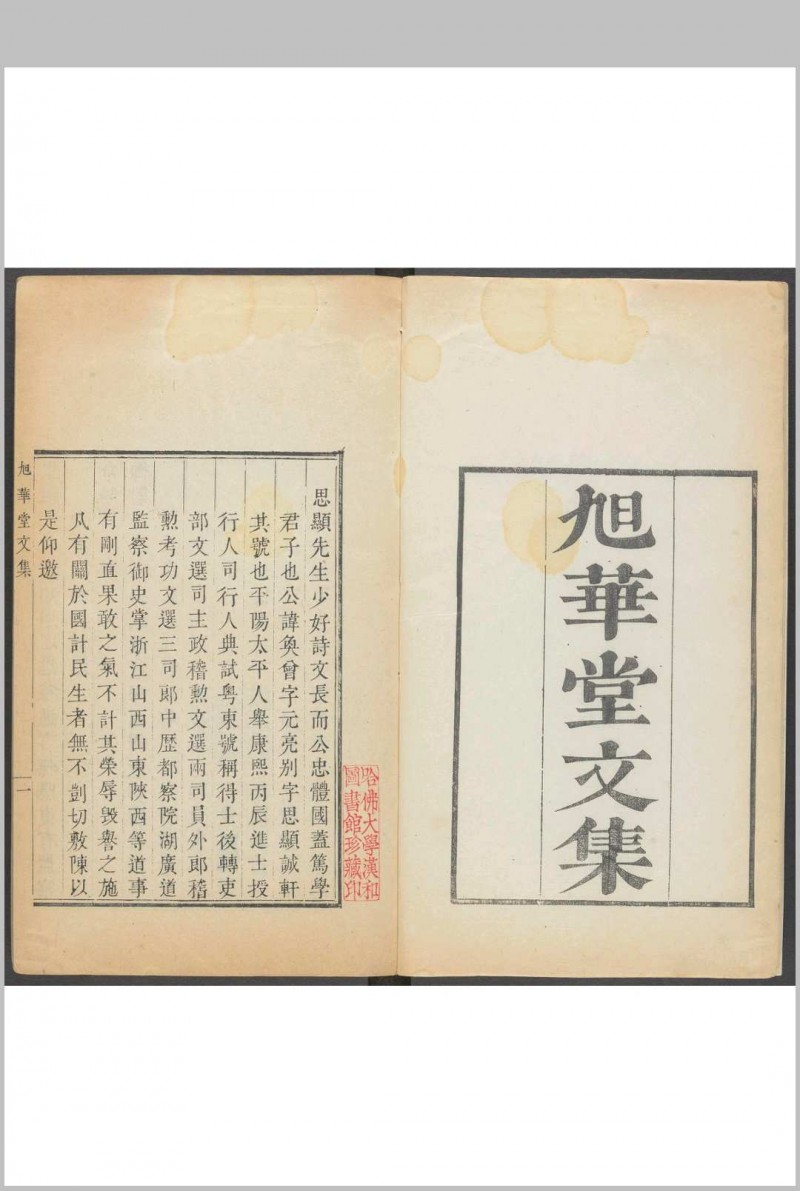 旭華堂文集
哈佛大學漢和
圖書館珍藏印
思顯先生少好詩文長而公忠體國蓋篤學
君子也公諱奐曾字元亮别字思顯誠軒
其號也平陽太平人舉康熙丙辰進士授
行人司行人典試粤東號稱得士後轉吏
部文選司主政稽勲文選兩司員外郎稽
勲考功文選三司郎中歷都察院湖廣道
監察御史掌浙江山西山東陜西等道事
有剛直果敢之氣不計其榮辱毀譽之施
凡有關於國計民生者無不剴切敷陳以
是仰邀
旭華堂文集
一